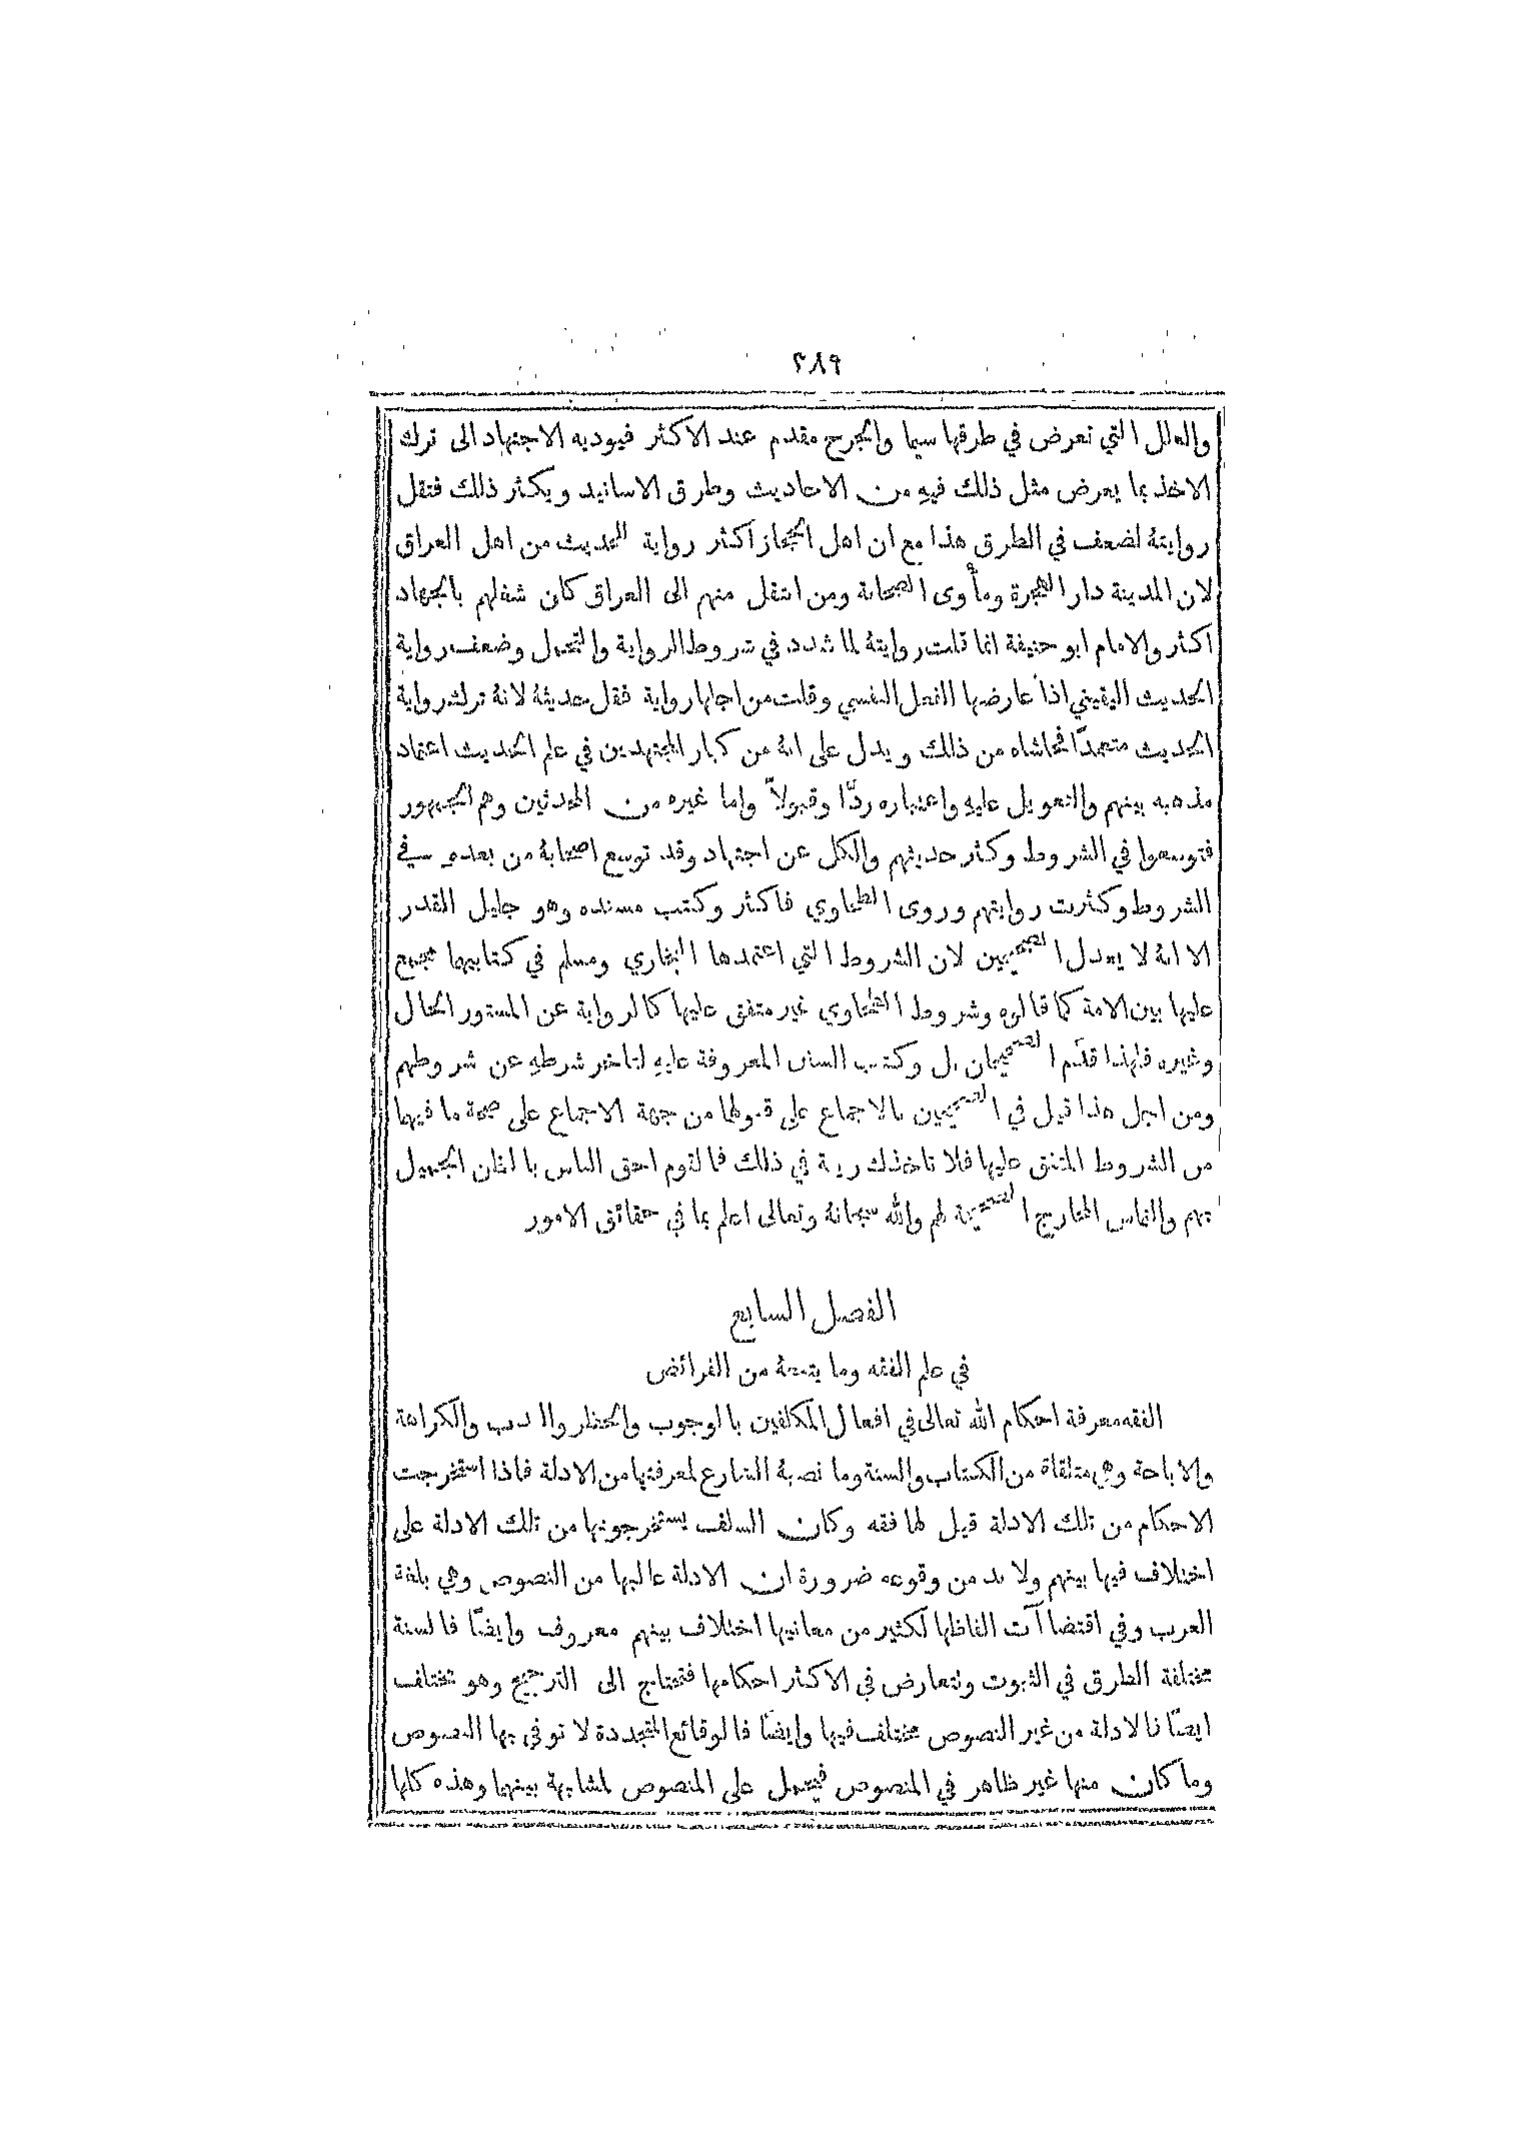 ٣٨٩
والعلل التي تعرض في طرقها سيما والجرح مقدم عند الاكثر فيوديه الاجتهاد الى ترك
الاخذ بما يعرض مثل ذلك فيهِ من الاحاديث وطرق الاسانيد ويكثر ذلك فتقل
روايتهُ لضعف في الطرق هذا مع ان اهل الحجاز اكثر رواية للحديث من اهل العراق
لان المدينة دار الهجرة ومأوى الصحابة ومن انتقل منهم الى العراق كان شغلهم بالجهاد
اكثر والامام ابو حنيفة انما قلت روايتهُ لما شدد في شروط الرواية والتحمل وضعف رواية
الحديث اليقيني اذا عارضها الفعل النفسي وقلت من اجلها رواية فقل حديثهُ لانهُ ترك رواية
الحديث متعمدًا فحاشاه من ذلك ويدل على انهُ من كبار المجتهدين في علم الحديث اعتماد
مذهبه بينهم والتعويل عليهِ واعتباره ردًّا وقبولاً واما غيره من المحدثين وهم الجمهور
فتوسعوا في الشروط وكثر حديثهم والكل عن اجتهاد وقد توسع اصحابهُ من بعدهِ في
الشروط وكثرت روايتهم وروى الطحاوي فاكثر وكتب مسنده وهو جليل القدر
الا انهُ لا يعدل الصحيحين لان الشروط التي اعتمدها البخاري ومسلم في كتابيهما مجمع
عليها بين الامة كما قالوه وشروط الطحاوي غير متفق عليها كالرواية عن المستور الحال
وغيره فلهذا قدّم الصحيحان بل وكتب السنن المعروفة عليهِ لتاخر شرطهِ عن شروطهم
ومن اجل هذا قيل في الصحيحين بالاجماع على قبولها من جهة الاجماع على صحة ما فيها
من الشروط المتفق عليها فلا تاخذك ريبة في ذلك فالقوم احق الناس بالظن الجميل
بهم والتماس المخارج الصحيحة لهم والله سبحانهُ وتعالى اعلم بما في حقائق الامور
الفصل السابع
في علم الفقه وما يتبعهُ من الفرائض
الفقه معرفة احكام الله تعالى في افعال المكلفين بالوجوب والحظر والندب والكراهة
والاباحة وهي متلقاة من الكتاب والسنة وما نصبهُ الشارع لمعرفتها من الادلة فاذا استخرجت
الاحكام من تلك الادلة قيل لها فقه وكان السلف يستخرجونها من تلك الادلة على
اختلاف فيها بينهم ولا بد من وقوعه ضرورة ان الادلة غالبها من النصوص وهي بلغة
العرب وفي اقتضاآت الفاظها لكثير من معانيها اختلاف بينهم معروف وايضًا فالسنة
مختلفة الطرق في الثبوت وتتعارض في الاكثر احكامها فتحتاج الى الترجيح وهو مختلف
ايضًا فالادلة من غير النصوص مختلف فيها وايضًا فالوقائع المتجددة لا توفي بها النصوص
وما كان منها غير ظاهر في المنصوص فيحمل على المنصوص لمشابهة بينهما وهذه كلها